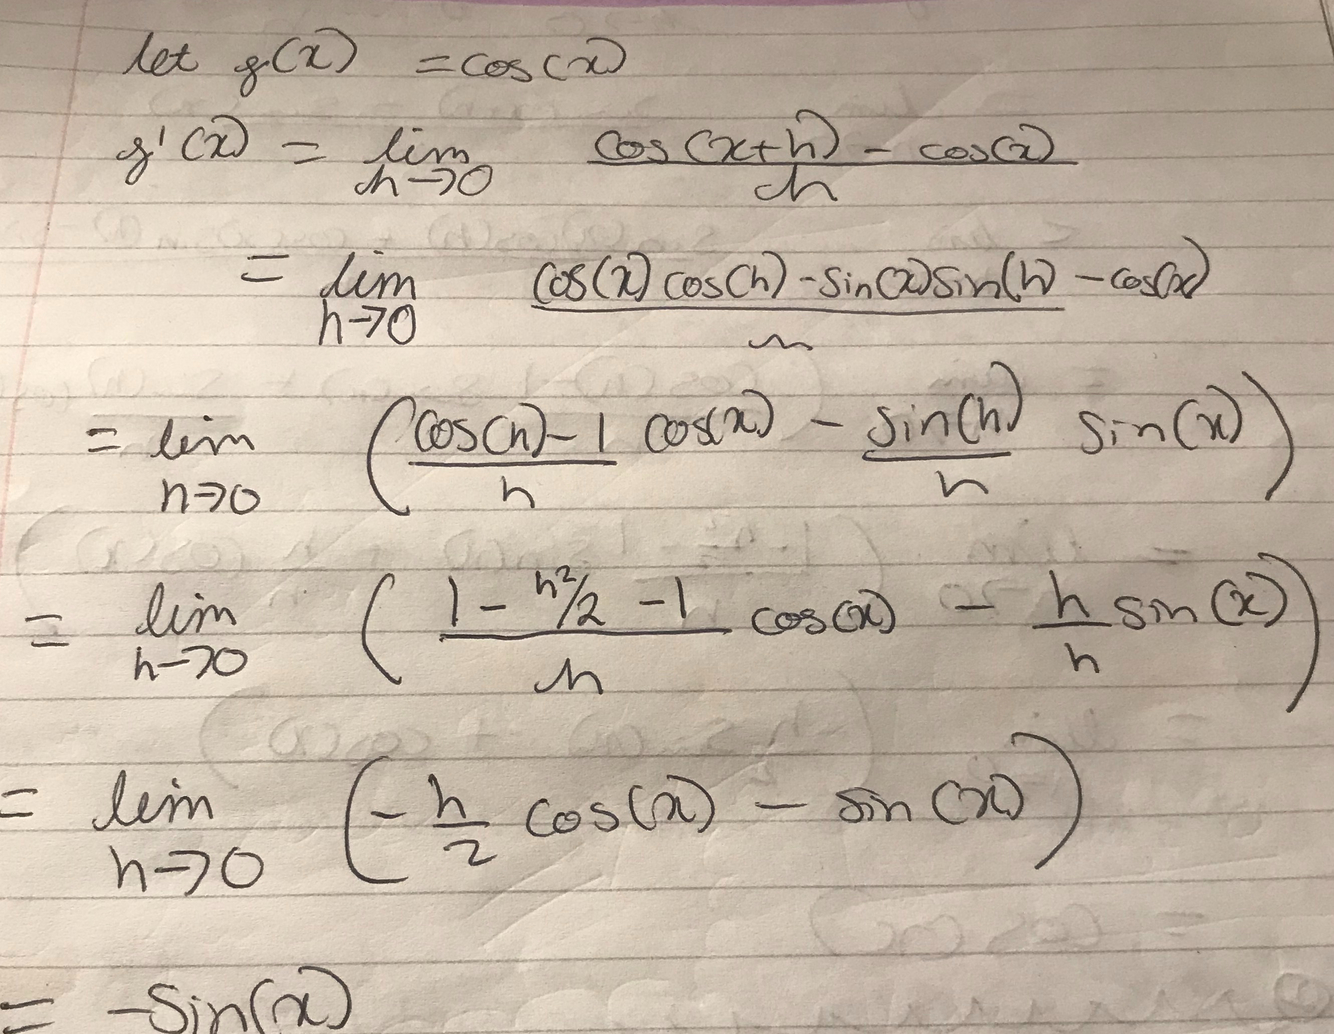 let g(x) = cos(x)
g'(x) = lim h→0 (cos(x+h) - cos(x))/h
= lim h→0 (cos(x) cos(h) - sin(x) sin(h) - cos(x))/h
= lim h→0 ((cos(h) - 1)/h cos(x) - sin(h)/h sin(x))
= lim h→0 ((1 - h²/2 - 1)/h cos(x) - h/h sin(x))
= lim h→0 (-h/2 cos(x) - sin(x))
= -sin(x)